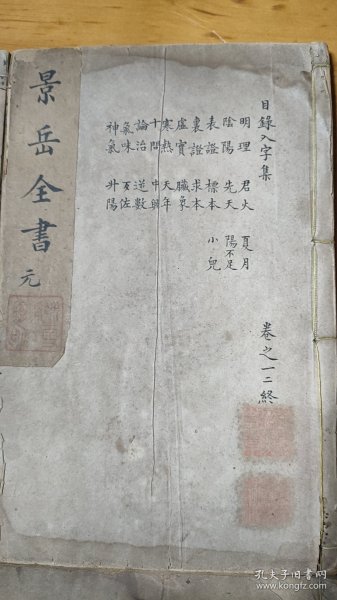 景岳全書 元
目錄入字集
明理 君火 夏月
陰陽 先天 陽不足
表證 標本 小兒
裏證 求本
虛實 臟象
寒熱 天年
十問 中興
論治 逆數
氣味 反佐
神氣 升陽
卷之一二終
孔夫子旧书网
www.kongfz.com